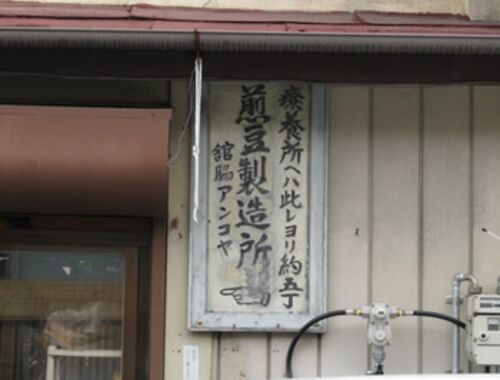 療養所ヘハ此レヨリ約五丁
煎豆製造所
舘脇アンコヤ